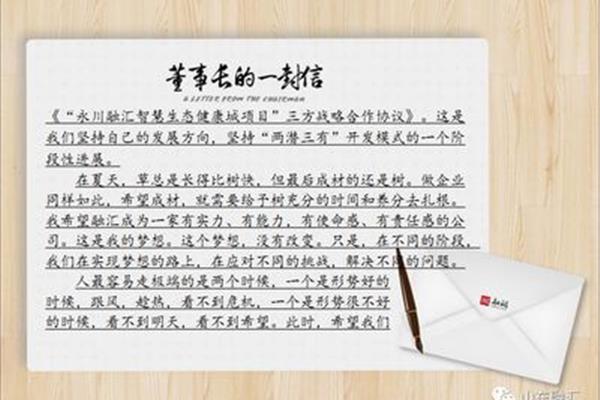 董事长的一封信
A LETTER FROM THE CHAIRMAN
《“永川融汇智慧生态健康城项目”三方战略合作协议》。这是
我们坚持自己的发展方向，坚持“两潜三有”开发模式的一个阶
段性进展。
在夏天，草总是长得比树快，但最后成材的还是树。做企业
同样如此，希望成材，就需要给予树充分的时间和养分去扎根。
我希望融汇成为一家有实力、有能力，有使命感、有责任感的公
司。这是我的梦想。这个梦想，没有改变。只是，在不同的阶段，
我们在实现梦想的路上，在应对不同的挑战，解决不同的问题。
人最容易走极端的是两个时候，一个是形势好的
时候，跟风，趁热，看不到危机，一个是形势很不好
的时候，看不到明天，看不到希望。此时，希望我们
山东融汇